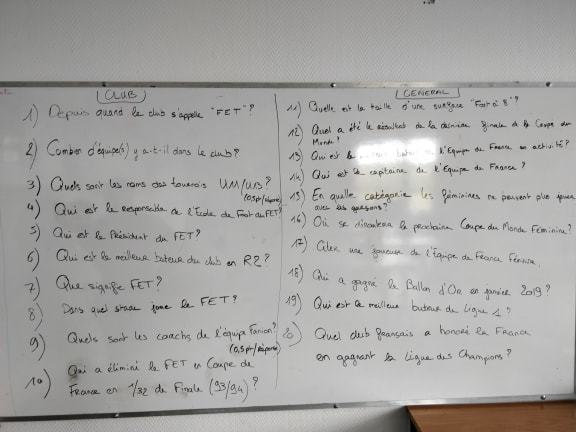 CLUB
1) Depuis quand le club s'appelle "FET"?
2) Combien d'équipe(s) y a-t-il dans le club?
3) Quels sont les noms des tournois U11/U13?
(0,5pt/réponse)
4) Qui est le responsable de l'Ecole de Foot du FET?
5) Qui est le Président du FET?
6) Qui est le meilleur buteur du club en R2?
7) Que signifie FET?
8) Dans quel stade joue le FET?
9) Quels sont les coachs de l'équipe Fanion?
(0,5pt/réponse)
10) Qui a éliminé le FET en Coupe de
France en 1/32 de Finale (93/94)?
GENERAL
11) Quelle est la taille d'une surface "Foot à 8"?
12) Quel a été le résultat de la dernière finale de la Coupe du
Monde?
13) Qui est le meilleur buteur de l'Equipe de France en activité?
14) Qui est le capitaine de l'Equipe de France?
15) En quelle catégorie les féminines ne peuvent plus jouer
avec les garçons?
16) Où se déroulera la prochaine Coupe du Monde Féminine?
17) Citer une joueuse de l'Equipe de France Féminine.
18) Qui a gagné le Ballon d'Or en janvier 2019?
19) Qui est le meilleur buteur de Ligue 1?
20) Quel club français a honoré la France
en gagnant la Ligue des Champions?